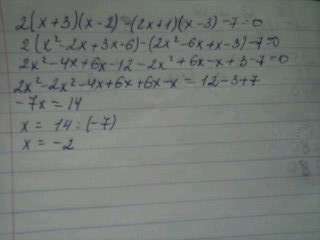 2(x+3)(x-2)-(2x+1)(x-3)-7=0
2(x²-2x+3x-6)-(2x²-6x+x-3)-7=0
2x²-4x+6x-12-2x²+6x-x+3-7=0
2x²-2x²-4x+6x+6x-x=12-3+7
-7x=14
x=14:(-7)
x=-2